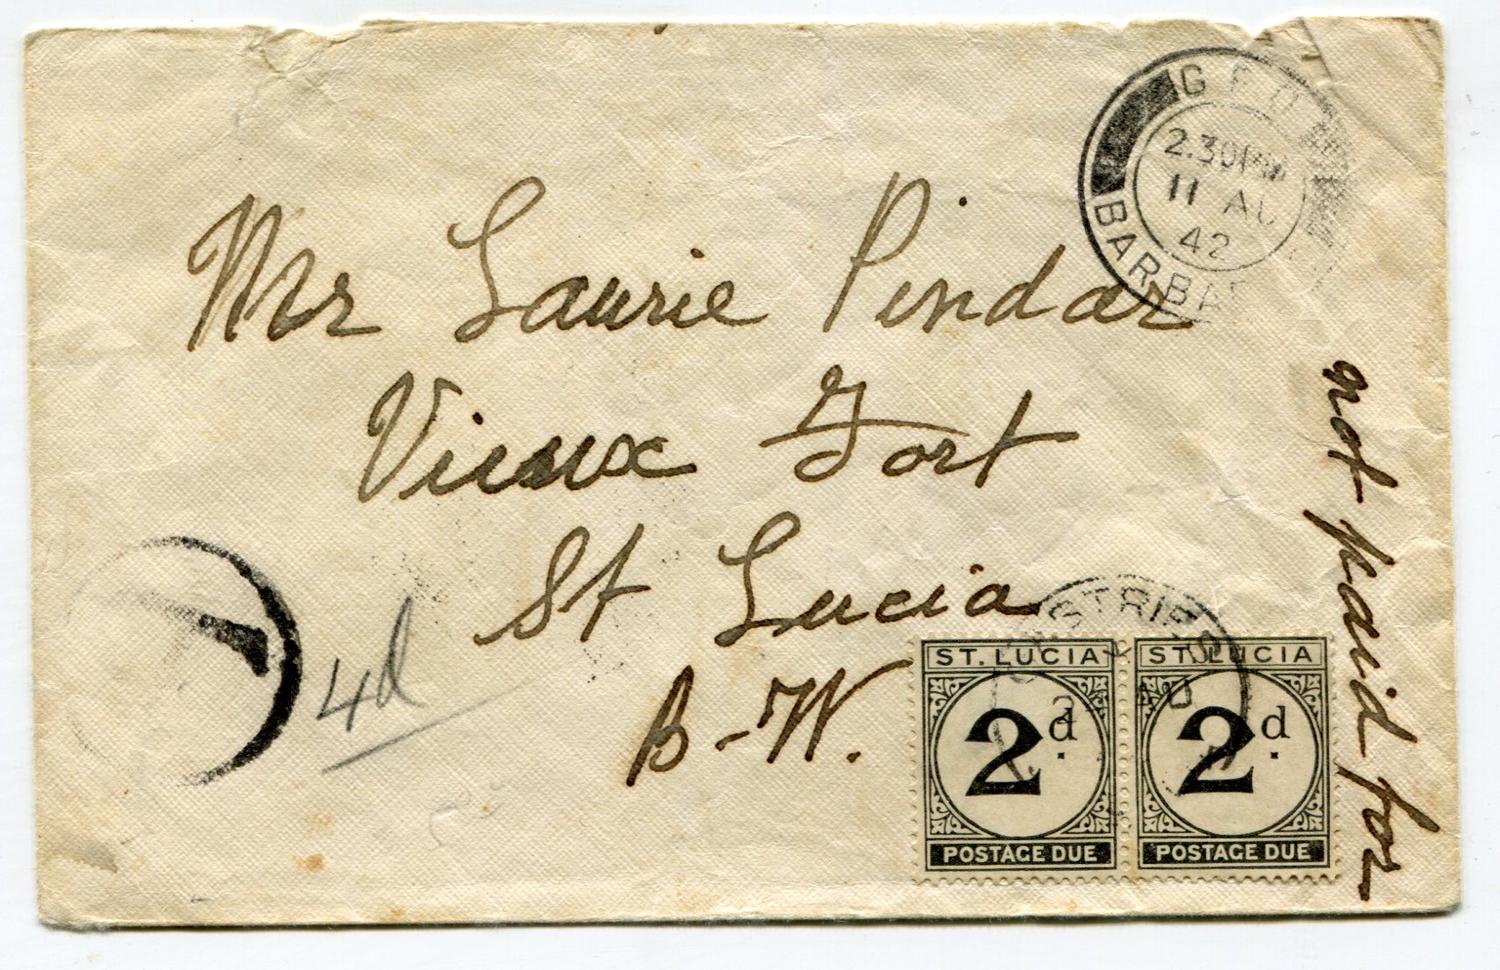 G P O
2.30 PM
11 AU
42
BARBA
Mr Laurie Pindar
Vieux Fort
St Lucia
B-W.
not paid for
T
4d
CASTRIES
AU
ST. LUCIA
2d.
POSTAGE DUE
ST. LUCIA
2d.
POSTAGE DUE